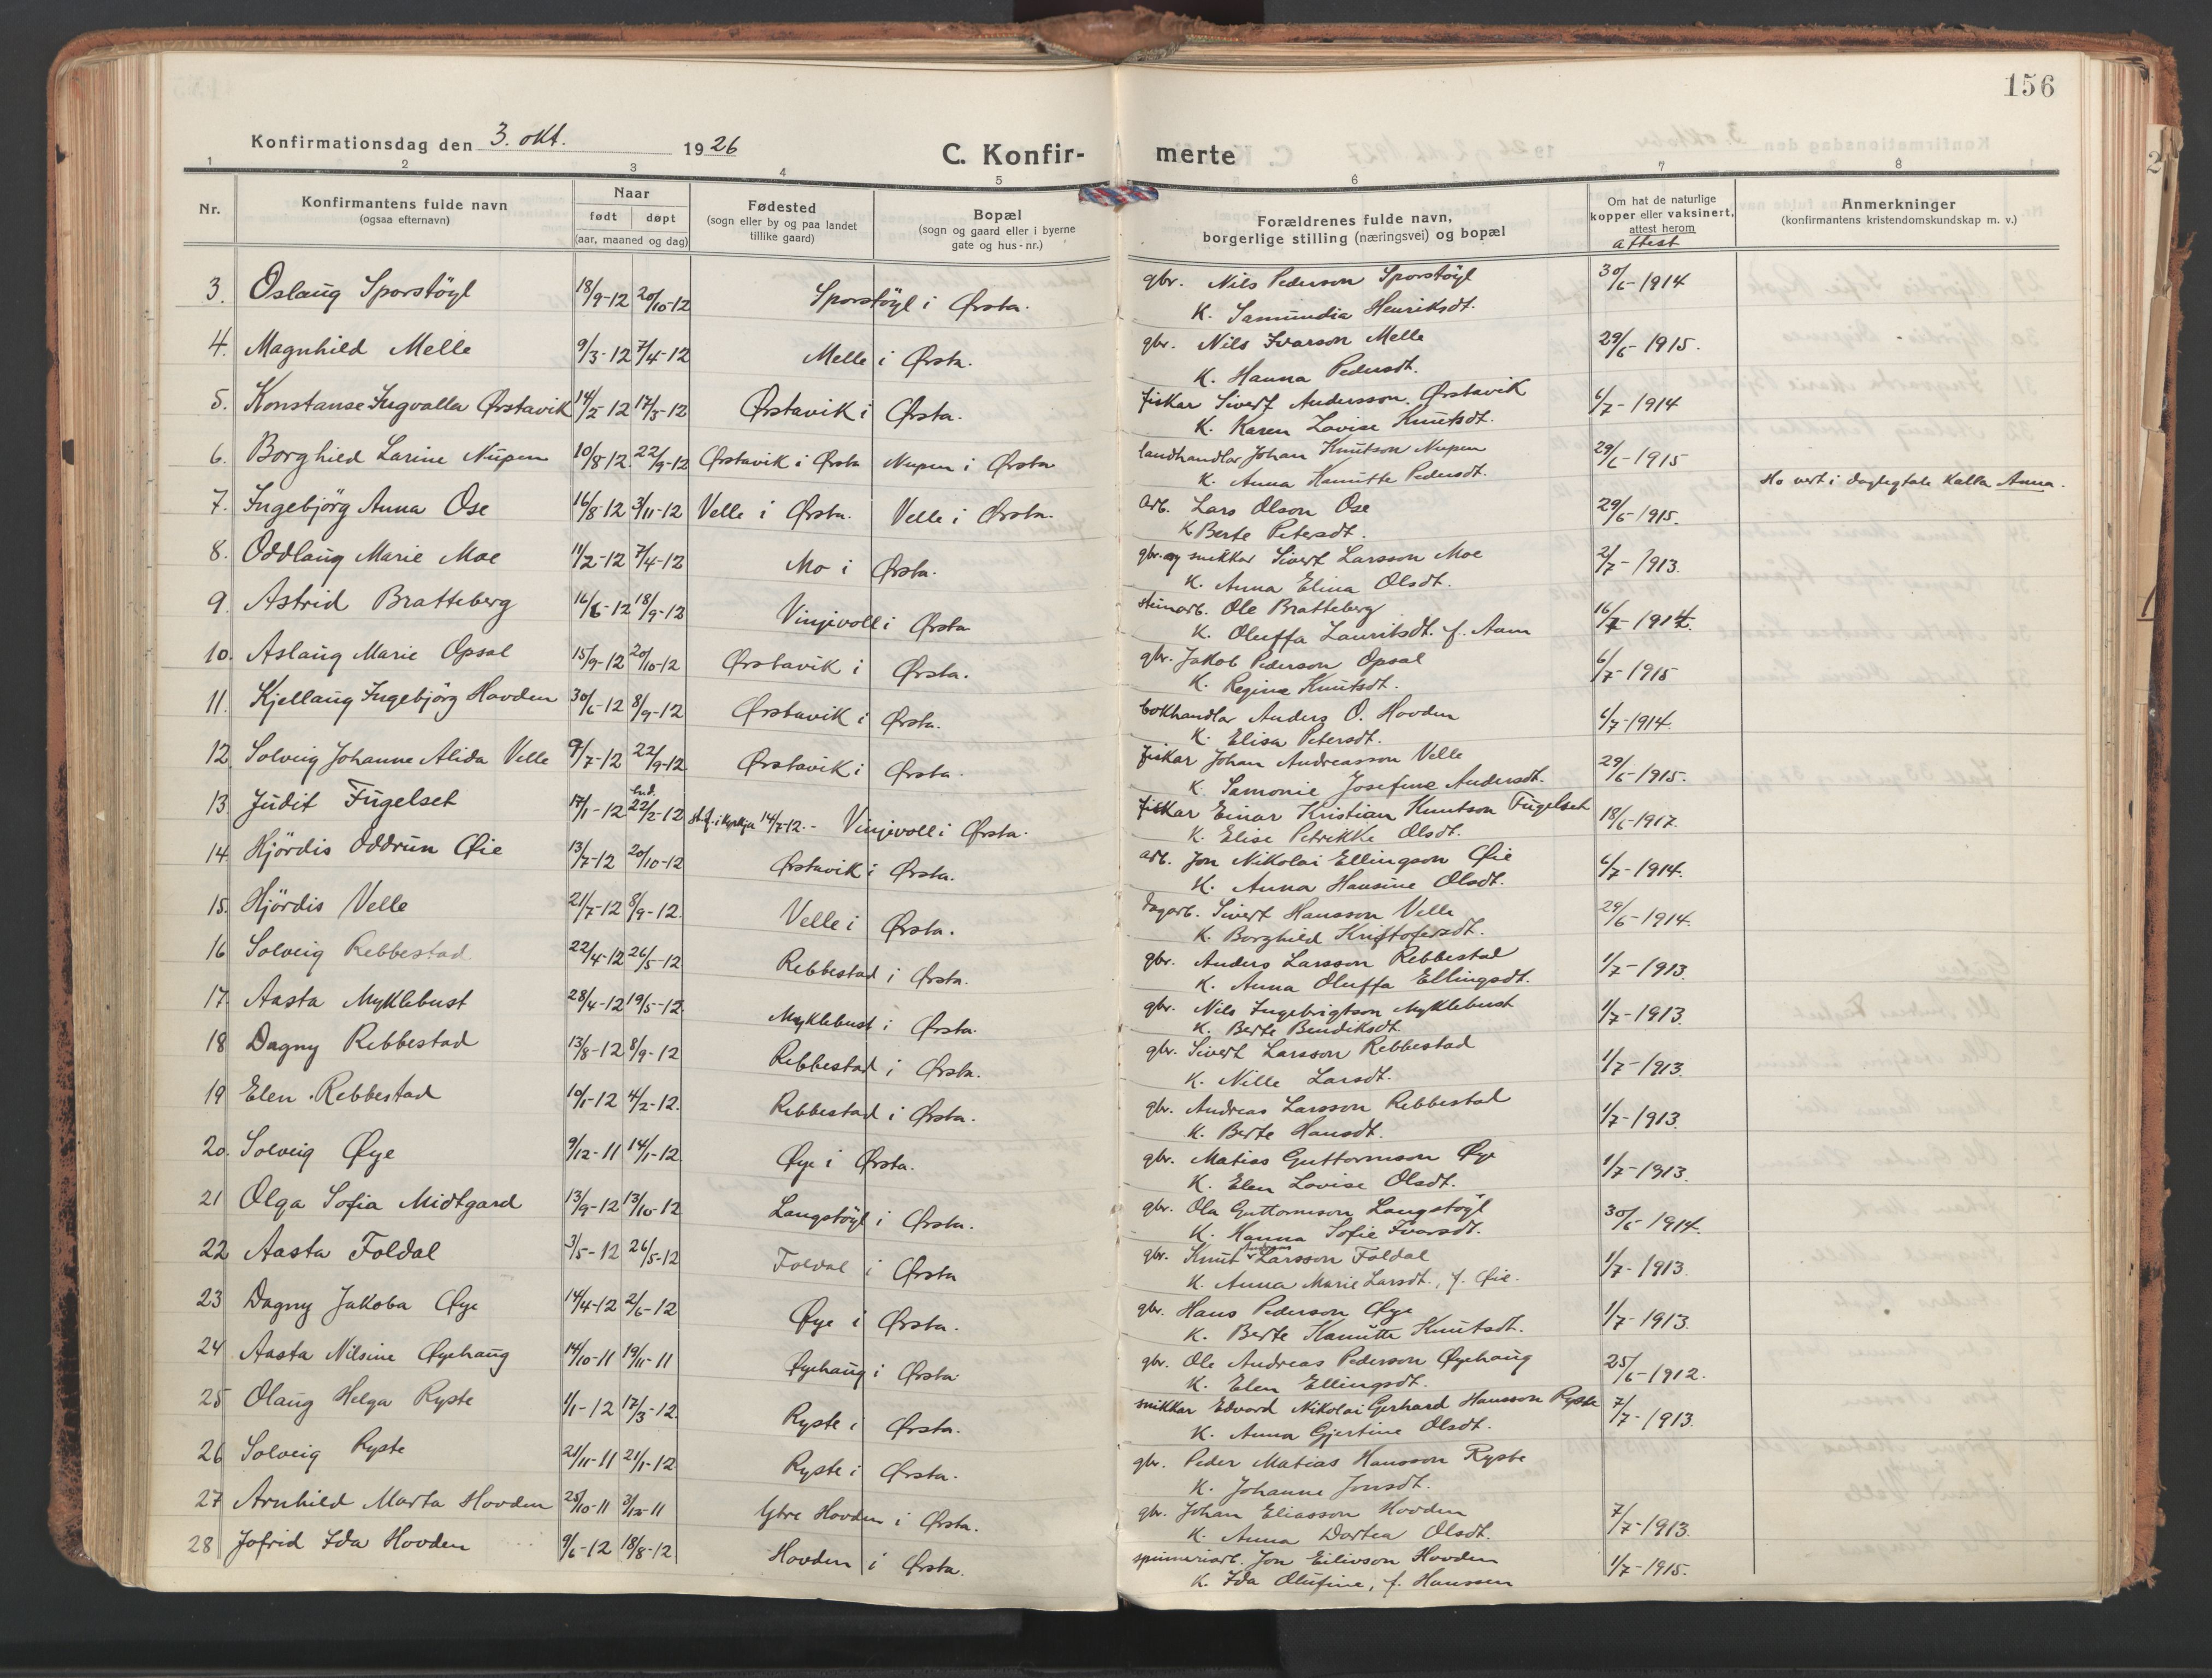 156
Konfirmationsdag den 3. okt. 1926
C. Konfir- merte
1 2 3 4 5 6 7 8
Nr. Konfirmantens fulde navn (ogsaa efternavn) Naar født døpt (aar, maaned og dag) Fødested (sogn eller by og paa landet tillike gaard) Bopæl (sogn og gaard eller i byerne gate og hus-nr.) Forældrenes fulde navn, borgerlige stilling (næringsvei) og bopæl Om hat de naturlige kopper eller vaksinert, attest herom attest Anmerkninger (konfirmantens kristendomskundskap m. v.)
3. Oslaug Sporstöyl 18/9-12 20/10-12 Sporstöyl i Ørsta. gbr. Nils Pederson Sporstöyl 30/6-1914
K. Samundia Henriksdt.
4. Magnhild Melle 9/3-12 7/4-12 Melle i Ørsta. gbr. Nils Ivarson Melle 29/6-1915.
K. Hanna Pedersdt.
5. Konstanse Ingvalla Ørstavik 14/2-12 17/3-12 Ørstavik i Ørsta. fiskar Sivert Andersson Ørstavik 6/7-1914
K. Karen Lovise Knutsdt.
6. Borghild Larine Nupen 10/8-12. 22/9-12 Ørstavik i Ørsta Nupen i Ørsta landhandlar Johan Knutson Nupen 29/6-1915
K. Anna Kanutte Pedersdt.
7. Ingebjörg Anna Ose 16/8-12 3/11-12 Velle i Ørsta. Velle i Ørsta. Arb. Lars Olson Ose 29/6-1915. Ho vert i daglegtale kalla Anna.
K Berte Petersdt.
8. Oddlaug Marie Moe 11/2-12 7/4-12 Mo i Ørsta. gbr. og snikkar Sivert Larsson Moe 2/7-1913.
K. Anna Elina Olsdt.
9. Astrid Bratteberg 16/6-12 18/9-12 Vinjevoll i Ørsta steinarb. Ole Bratteberg 16/7-1914.
K. Oluffa Lauritsdt. f. Aam
10. Aslaug Marie Opsal 15/9-12 20/10-12 Ørstavik i Ørsta. gbr. Jakob Pederson Opsal 6/7-1915
K. Regine Knutsdt.
11. Kjellaug Ingebjörg Hovden 30/6-12 8/9-12 Ørstavik i Ørsta. bokhandlar Anders O. Hovden 6/7-1914.
K. Elisa Petersdt.
12. Solveig Johanne Alida Velle 9/7-12 22/9-12 Ørstavik i Ørsta. fiskar Johan Andreasson Velle 29/6-1915.
K. Samonie Josefine Andersdt.
13. Judit Fugelset 17/1-12 22/2-12 14/7-12.- Vinjevoll i Ørsta. fiskar Einar Kristian Knutson Fugelset 18/6-1917.
K. Elise Petrikke Olsdt.
14. Hjördis Oddrun Øie 13/7-12 20/10-12 Ørstavik i Ørsta. arb. Jon Nikolai Ellingson Øie 6/7-1914.
K. Anna Hansine Olsdt.
15. Hjördis Velle 21/7-12 8/9-12. Velle i Ørsta. dagarb. Sivert Hansson Velle 29/6-1914.
K. Borghild Kristofersdt.
16 Solveig Rebbestad 22/4-12 26/5-12 Rebbestad i Ørsta. gbr. Anders Larsson Rebbestal 1/7-1913.
K. Anna Oluffa Ellingsdt.
17. Aasta Myklebust 28/4-12 19/5-12. Myklebust i Ørsta. gbr. Nils Ingebrigtson Myklebust 1/7-1913.
K. Berte Bendiksdt.
18 Dagny Rebbestad 13/8-12 8/9-12 Rebbestad i Ørsta. gbr. Sivert Larsson Rebbestad 1/7-1913.
K. Nille Larsdt.
19 Elen Rebbestad 10/1-12 4/2-12. Rebbestad i Ørsta. gbr. Andreas Larsson Rebbestal 1/7-1913.
K. Berte Hansdt.
20. Solveig Øye 9/12-11 14/1-12 Øye i Ørsta. gbr. Matias Guttormson Øye 1/7-1913.
K. Elen Lovise Olsdt.
21 Olga Sofia Midtgard 13/9-12 13/10-12 Langstöyl i Ørsta. gbr. Ola Guttormson Langstöyl 30/6-1914.
K. Hanna Sofie Ivarsdt.
22 Aasta Foldal 3/5-12 26/5-12 Foldal i Ørsta gbr. Knut Larsson Foldal 1/7-1913.
K. Anna Marie Larsdt., f. Øie.
23 Dagny Jakoba Øye 14/4-12 2/6-12 Øye i Ørsta. gbr. Hans Pederson Øye 1/7-1913.
K. Berte Kanutte Knutsdt.
24 Aasta Nilsine Øyehaug 14/10-11 19/11-11 Øyehaug i Ørsta gbr. Ole Andreas Pederson Øyehaug 25/6-1912.
K. Elen Ellingsdt.
25 Olaug Helga Ryste 1/1-12 17/3-12. Ryste i Ørsta. snikkar Edvard Nikolai Gerhard Hansson Ryste 7/7-1913.
K. Anna Gjertine Olsdt.
26 Solveig Ryste 21/11-11 21/1-12 Ryste i Ørsta. gbr. Peder Matias Hansson Ryste
K. Johanne Jonsdt.
27 Arnhild Marta Hovden 25/10-11 3/12-11 Ytre Hovden i Ørsta. gbr. Johan Eliasson Hovden 7/7-1913.
K. Anna Dortea Olsdt.
28 Jofrid Ida Hovden 9/6-12 18/8-12 Hovden i Ørsta. spinneriarb. Jon Eilivson Hovden 1/7-1915.
K. Ida Olufine, f. Hanssen